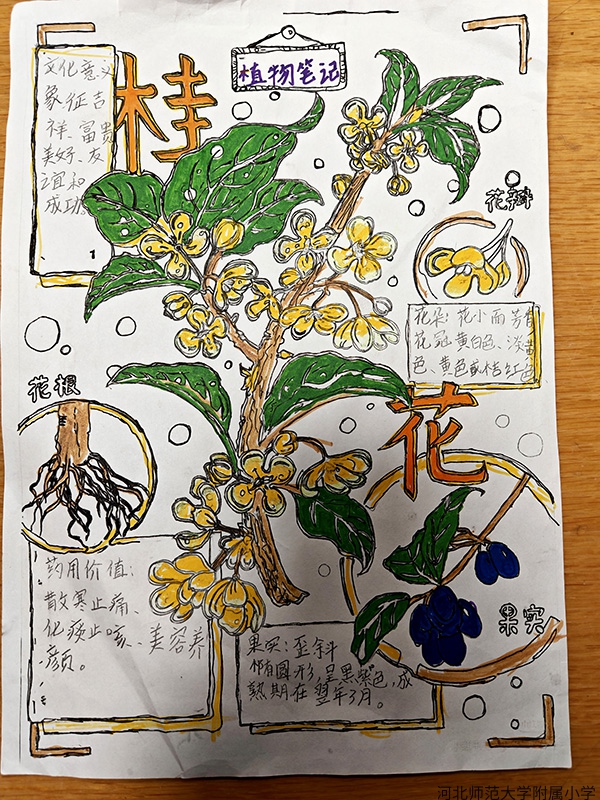 植物笔记
桂
花
文化意义
象征吉
祥、富贵
美好、友
谊和
成功
1
花瓣
花朵:花小而芳香
花冠黄白色、淡黄
色、黄色或桔红色
花根
药用价值:
散寒止痛、
化痰止咳、美容养
颜。
果实
果实:歪斜
椭圆形,呈黑紫色,成
熟期在翌年3月。
河北师范大学附属小学